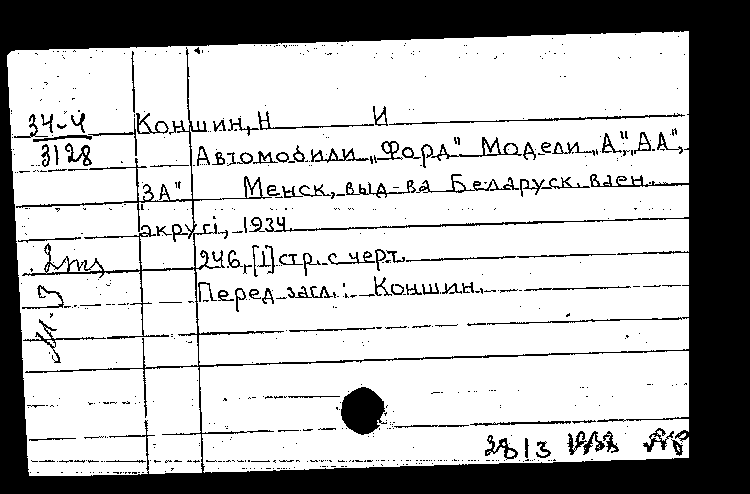 34-4
3128
Коншин, Н И
Автомобили „Форд" Модели „А", „АА",
„ЗА" Менск, выд-ва Беларуск. ваен.
акругі, 1934.
246, [1] стр. с черт.
Перед загл.: Коншин.
2 тз
2813